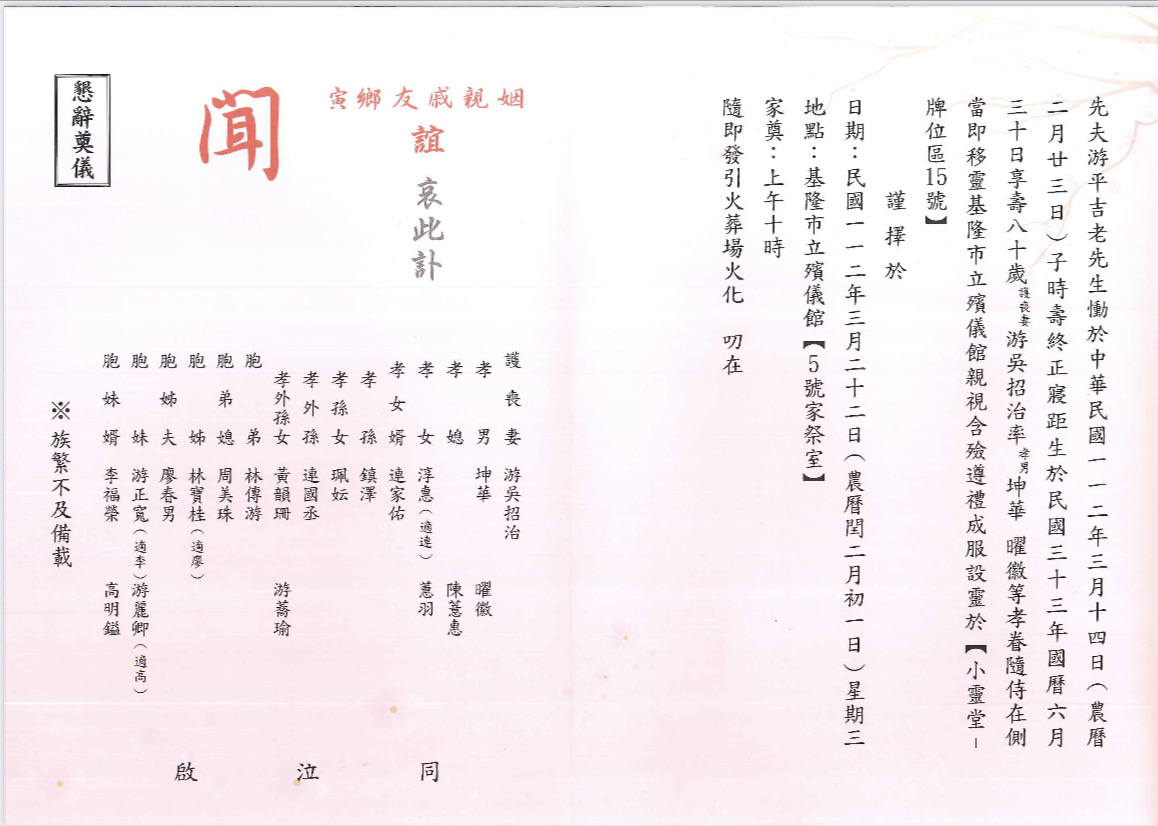 先夫游平吉老先生慟於中華民國一一二年三月十四日(農曆
二月廿三日)子時壽終正寢距生於民國三十三年國曆六月
三十日享壽八十歲護喪妻游吳招治率孝男坤華 曜徽等孝眷隨侍在側
當即移靈基隆市立殯儀館親視含殮遵禮成服設靈於【小靈堂-
牌位區15號】
謹擇於
日期:民國一一二年三月二十二日(農曆閏二月初一日)星期三
地點:基隆市立殯儀館【5號家祭室】
家奠:上午十時
隨即發引火葬場火化 叨在
姻親戚友鄉寅
誼
哀此訃
聞
懇辭奠儀
護喪妻 游吳招治
孝男 坤華 曜徽
孝媳 陳薏惠
孝女 淳惠(適連) 蕙羽
孝女婿 連家佑
孝孫 鎮澤
孝孫女 珮妘
孝外孫 連國丞
孝外孫女 黃韻珊 游蕎瑜
胞弟 林傳游
胞弟媳 周美珠
胞姊 林寶桂(適廖)
胞姊夫 廖春男
胞妹 游正寬(適李) 游麗卿(適高)
胞妹婿 李福榮 高明鎰
※族繁不及備載
同泣啟